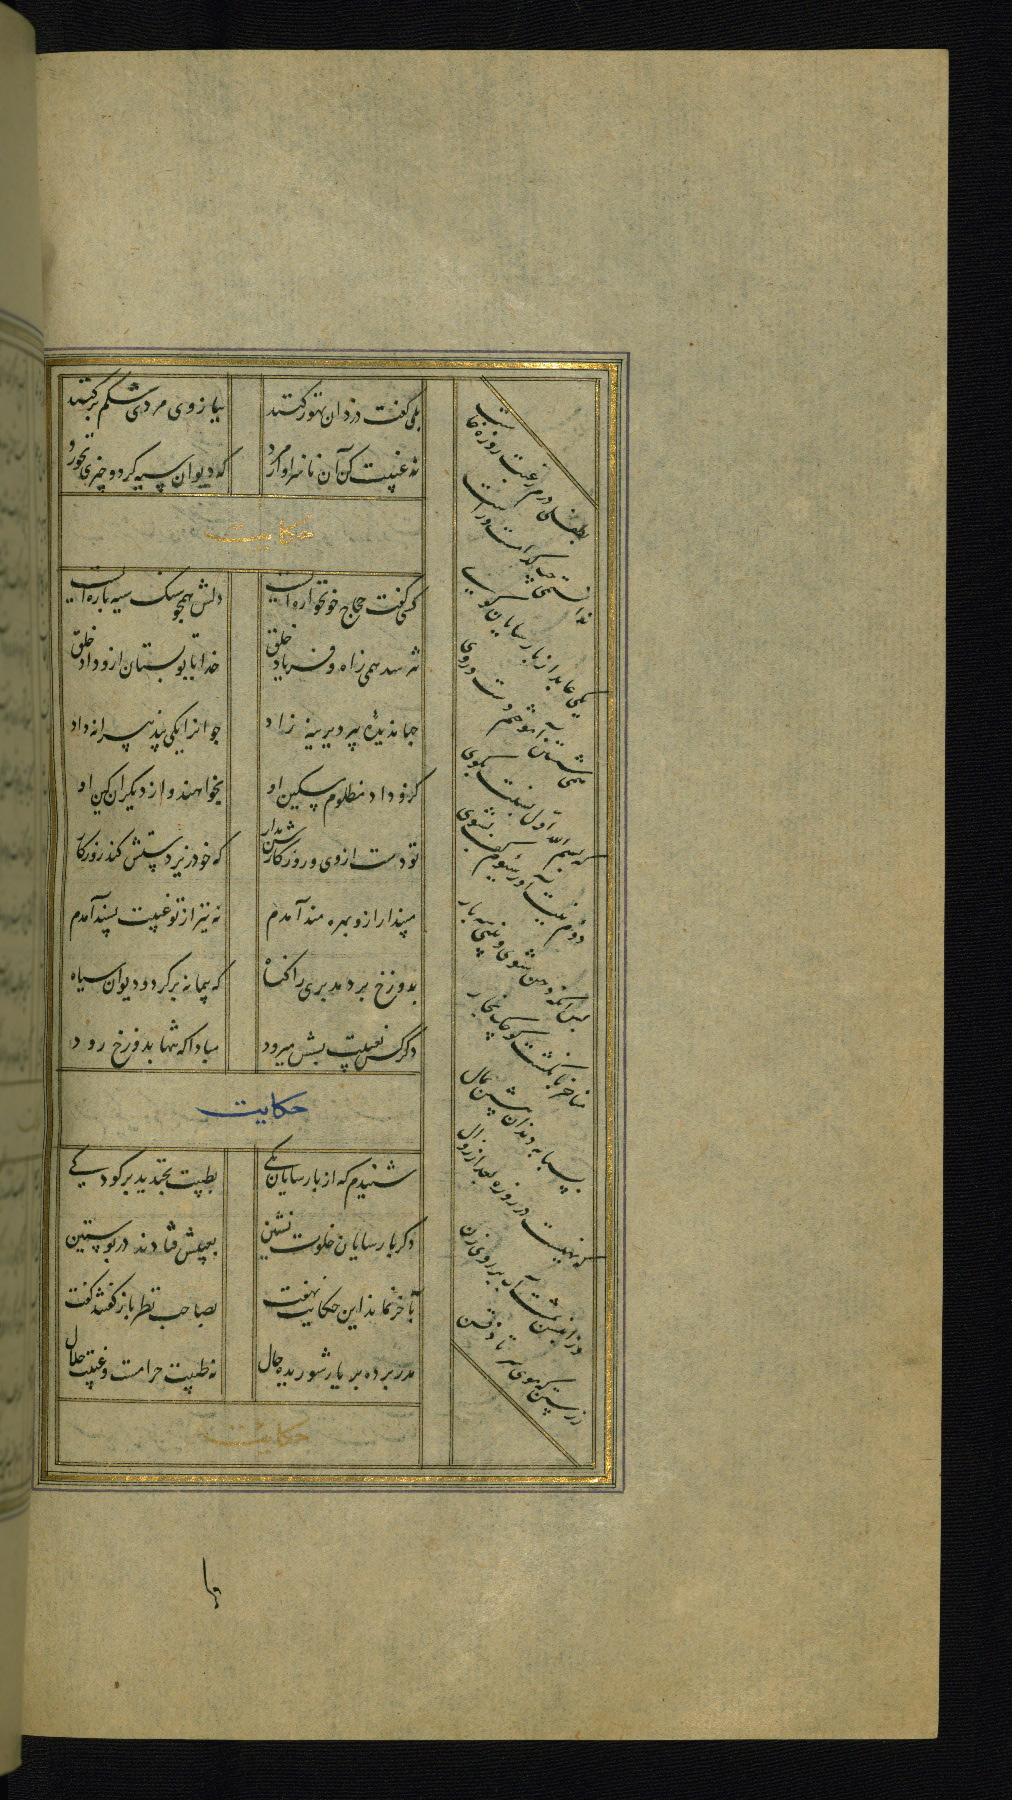 بلی گفت دزدان تهور کنند
ببازوی مردی شکم پر کنند
نه غیبت کن آن ناسزاوار مرد
که دیوان سیه کرد و چیزی نخورد
حکایت
کسی گفت حجاج خونخواره ایست
دلش همچو سنک سیه پاره ایست
نترسد همی زاه و فریاد خلق
خدایا تو بستان ازو داد خلق
جهاندیدهٔ پیر دیرینه زاد
جوانرا یکی پند پیرانه داد
کزو داد مظلوم مسکین او
بخواهند و از دیکران کین او
تو دست ازوی و روزکارش بدار
که خود زیر دستش کند روزکار
نه نیز از تو غیبت پسند آمدم
بدوزخ برد مدبری را کناه
که پیمانه پر کرد و دیوان سیاه
دکر کس بغیبت پیش میرود
مبادا که تنها بدوزخ رود
حکایت
شنیدم که از پارسایان یکی
بطیبت بخندید بر کودکی
دکر پارسایان خلوت نشین
بعیبش فتادند در پوستین
بآخر نماند این حکایت نهفت
بصاحب نظر باز گفتند گفت
مدر پرده بر یار شوریده حال
نه طیبت حرامست و غیبت حلال
حکایت
بطفلی درم رغبت روزه خاست
ندانستمی چپ کدامست و راست
یکی عابد از پارسایان کوی
همی شستن آموختم دست و روی
که بسم الله اول بسنت بکوی
دوم نیت آور سیوم کف بشوی
پس انکه دهن شوی و بینی سه بار
مناخر بانکشت کوچک بخار
بسبابه دندان پیشین بمال
که نهیست در روزه بعد از زوال
وز انپس سه مشت آب بر روی زن
ز رستنکه موی سر تا ذقن